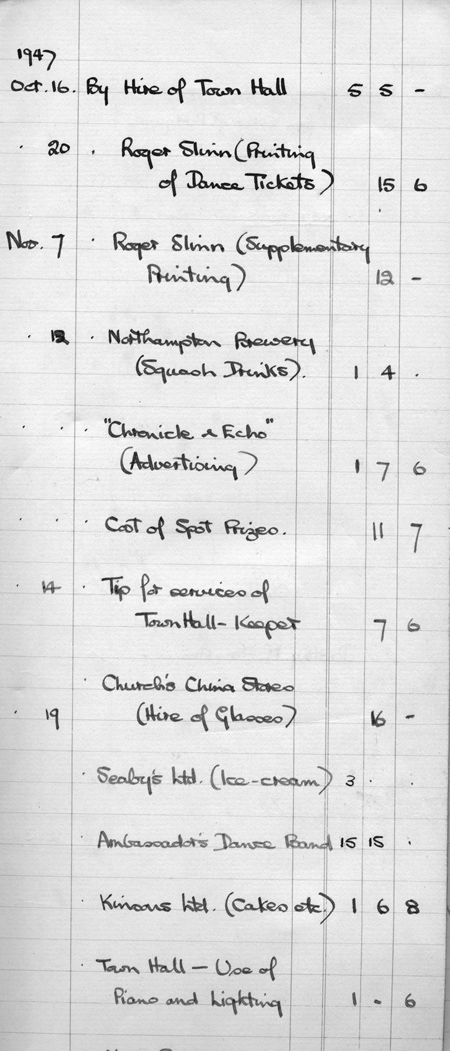 1947
Oct. 16. By Hire of Town Hall 5 5 -
· 20 · Roger Slinn (Printing
of Dance Tickets) 15 6
Nov. 7 · Roger Slinn (Supplementary
Printing) 12 -
· 12 · Northampton Brewery
(Squash Drinks). 1 4 ·
· · · "Chronicle & Echo"
(Advertising) 1 7 6
· · · Cost of Spot Prizes. 11 7
· 14 · Tip for services of
Town Hall-Keeper 7 6
Church's China Stores
· 19 (Hire of Glasses) 16 -
· Seaby's Ltd. (Ice-cream) 3 · ·
· Ambassador's Dance Band 15 15 ·
· Kinsons Ltd. (Cakes etc.) 1 6 8
· Town Hall — Use of
Piano and Lighting 1 - 6